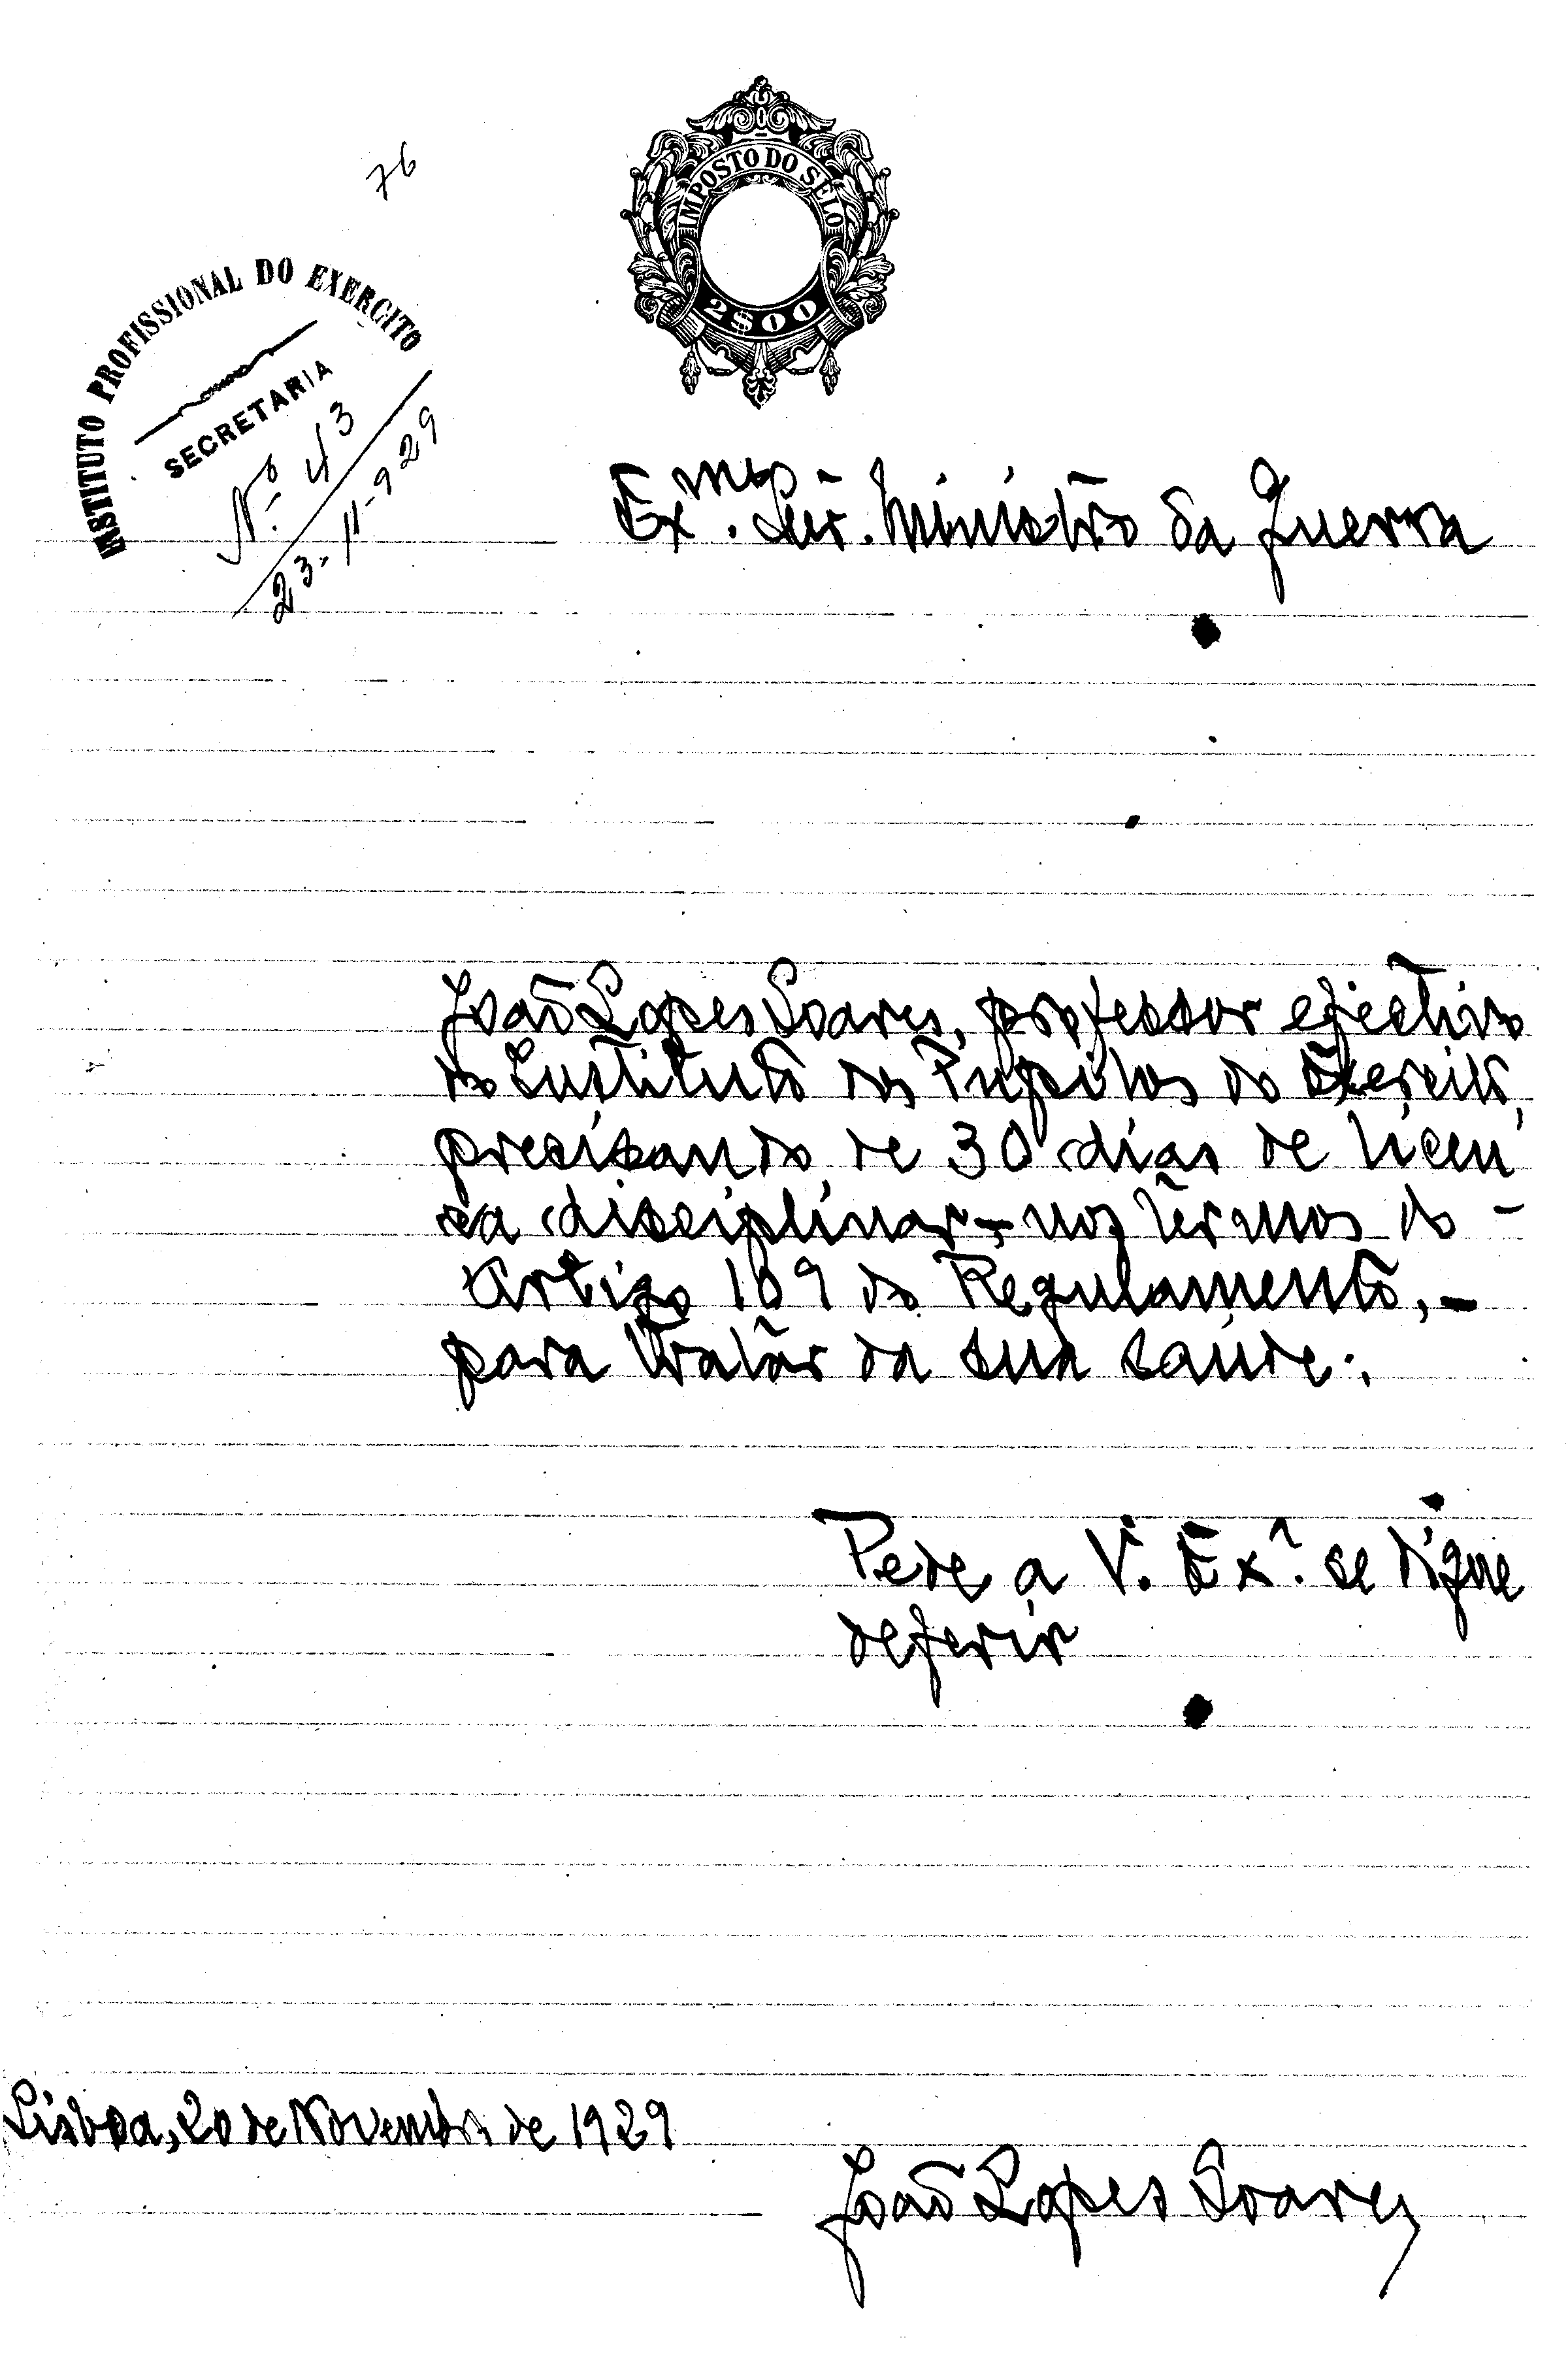 76
IMPOSTO DO SELO
2$00
INSTITUTO PROFISSIONAL DO EXERCITO
SECRETARIA
Nº 43
23-11-929
Exmo. Snr. Ministro da Guerra
João Lopes Soares, professor efectivo
do Instituto dos Pupilos do Exercito,
precisando de 30 dias de licen
ça disciplinar, nos termos do -
Artigo 109 do Regulamento, -
para tratar da sua saúde:,
Pede a V. Exª. se digne
deferir
Lisboa, 20 de Novembro de 1929
João Lopes Soares